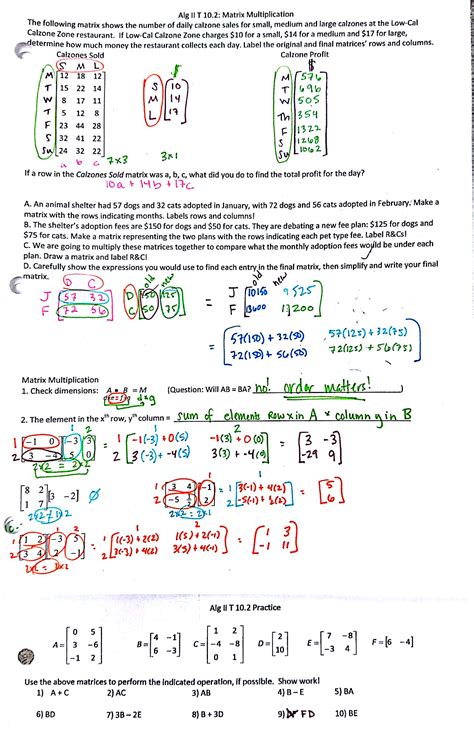 Alg II T 10.2: Matrix Multiplication
The following matrix shows the number of daily calzone sales for small, medium and large calzones at the Low-Cal
Calzone Zone restaurant. If Low-Cal Calzone Zone charges $10 for a small, $14 for a medium and $17 for large,
determine how much money the restaurant collects each day. Label the original and final matrices' rows and columns.
Calzones Sold
Calzone Profit
S M L
$
$
M 12 18 12
T 15 22 14
W 8 17 11
T 5 12 8
F 23 44 28
S 32 41 22
Su 24 32 22
a b c 7x3
S 10
M 14
L 17
3x1
M 576
T 696
W 505
Th 354
F 1322
S 1268
Su 1062
If a row in the Calzones Sold matrix was a, b, c, what did you do to find the total profit for the day?
10a + 14b + 17c
A. An animal shelter had 57 dogs and 32 cats adopted in January, with 72 dogs and 56 cats adopted in February. Make a
matrix with the rows indicating months. Labels rows and columns!
B. The shelter's adoption fees are $150 for dogs and $50 for cats. They are debating a new fee plan: $125 for dogs and
$75 for cats. Make a matrix representing the two plans with the rows indicating each pet type fee. Label R&Cs!
C. We are going to multiply these matrices together to compare what the monthly adoption fees would be under each
plan. Draw a matrix and label R&C!
D. Carefully show the expressions you would use to find each entry in the final matrix, then simplify and write your final
matrix.
D C old new old new
J 57 32 D 150 125 = J 10150 9525
F 72 56 C 50 75 F 13600 13200
= 57(150) + 32(50) 57(125) + 32(75)
72(150) + 56(50) 72(125) + 56(75)
Matrix Multiplication
1. Check dimensions: A • B = M (Question: Will AB = BA? no! order matters!)
2. The element in the xth row, yth column = sum of elements Row x in A × column y in B
1 -1 0 -3 3 = 1 -1(-3) + 0(5) -1(3) + 0(0) = 3 -3
2 3 -4 5 0 2 3(-3) + -4(5) 3(3) + -4(0) -29 9
2x2 = 2x2
8 2 3 -2 ∅
1 7
1 3 4 -1 = 1 3(-1) + 4(2) = 5
2 -5 2 2 -5(-1) +
2x2 = 2x1
1 1 2 -3 5 = 1 1(-3) + 2(2) 1(5) + 2(-1) = 1 3
2 3 4 2 -1 2 3(-3) + 4(2) 3(5) + 4(-1) -1 11
2x2 = 2x2
Alg II T 10.2 Practice
A = 0 5 B = 4 -1 C = 1 2 D = 2 E = 7 -8 F = [6 -4]
3 -6 6 -3 -4 -8 10 -3 4
-1 2 0 1
Use the above matrices to perform the indicated operation, if possible. Show work!
1) A + C 2) AC 3) AB 4) B – E 5) BA
6) BD 7) 3B – 2E 8) B + 3D 9) FD 10) BE